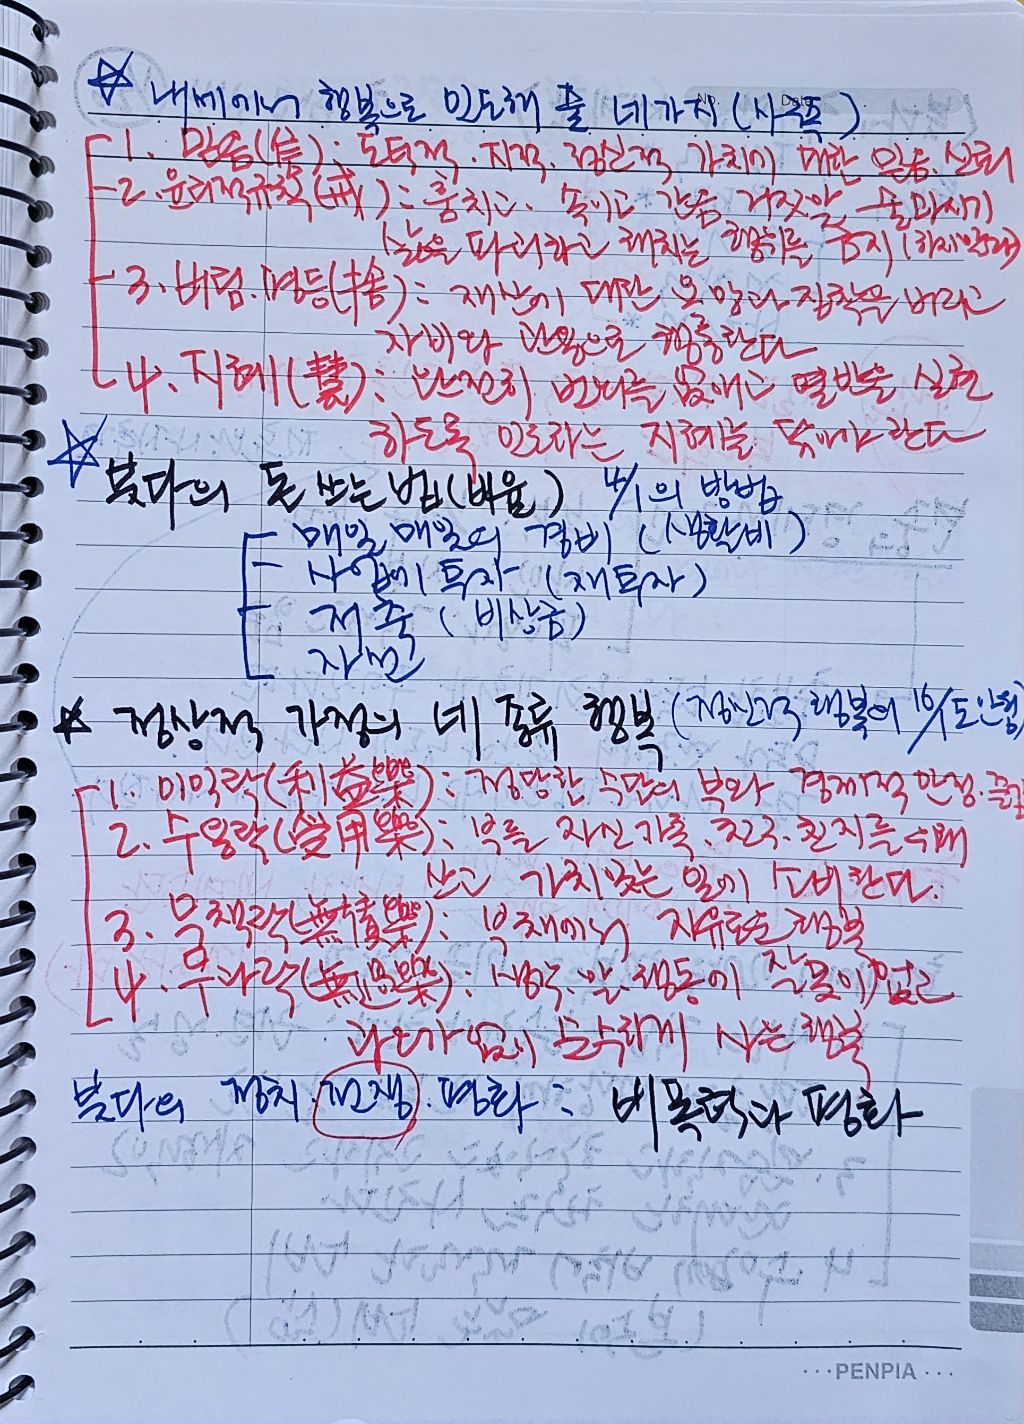 ☆ 내세에서 행복으로 인도해 줄 네가지 (사특)
1. 믿음(信): 도덕적·지적·정신적 가치에 대한 믿음·신뢰
2. 윤리적규칙(戒): 훔치고·속이고 간음 거짓말 술마시기
남을 파괴하고 해치는 행위를 금지
3. 버림·평등(捨): 재산에 대한 욕망과 집착을 버리고
자비와 관용으로 행동한다
4. 지혜(慧): 완전히 번뇌를 없애고 열반을 실현
하도록 인도하는 지혜를 닦아야 한다
☆ 붓다의 돈 쓰는 법(비율) 4/1의 방법
매일 매일의 경비 (생활비)
사업에 투자 (재투자)
저축 (비상금)
자선
☆ 정상적 가정의 네 종류 행복 (정신적 행복의 16/1도 안됨)
1. 이익락(利益樂): 정당한 수단의 부와 경제적 안정·즐김
2. 수용락(受用樂): 부를 자신 가족·친구·친지를 위해
쓰고 가치있는 일에 소비한다.
3. 무채락(無債樂): 부채에서 자유로운 행복
4. 무과락(無過樂): 생각·말·행동에 잘못이 없고
과오가 없이 순수하게 사는 행복
붓다의 정치·전쟁·평화: 비폭력과 평화
···PENPIA···